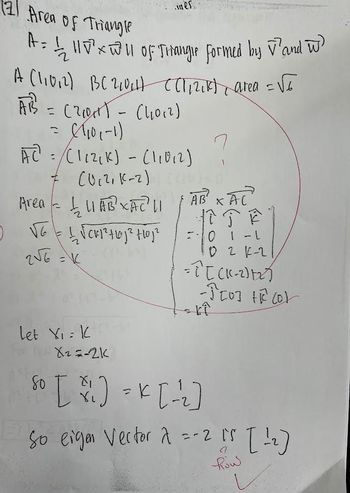 17] Area of Triangle
A = 1/2 ||V⃗ × W⃗|| of Triangle formed by V⃗ and W⃗
A (1,0,2) B(2,0,1) C(1,2,K), area = √6
AB⃗ = (2,0,1) - (1,0,2)
= (1,0,-1)
AC⃗ = (1,2,K) - (1,0,2) ?
= (0,2,K-2)
Area = 1/2 ||AB⃗ × AC⃗||
√6 = 1/2 √(K)²+(0)²+(0)²
2√6 = K
AB⃗ × AC⃗
= | î ĵ k̂ |
| 0 1 -1 |
| 0 2 K-2 |
= î [(K-2)+2]
- ĵ [0] + k̂ (0)
= Kî
Let x₁ = K
x₂ = -2K
so [x₁ x₂] = K [1 -2]
so eigen vector λ = -2 is [1 -2]
? How